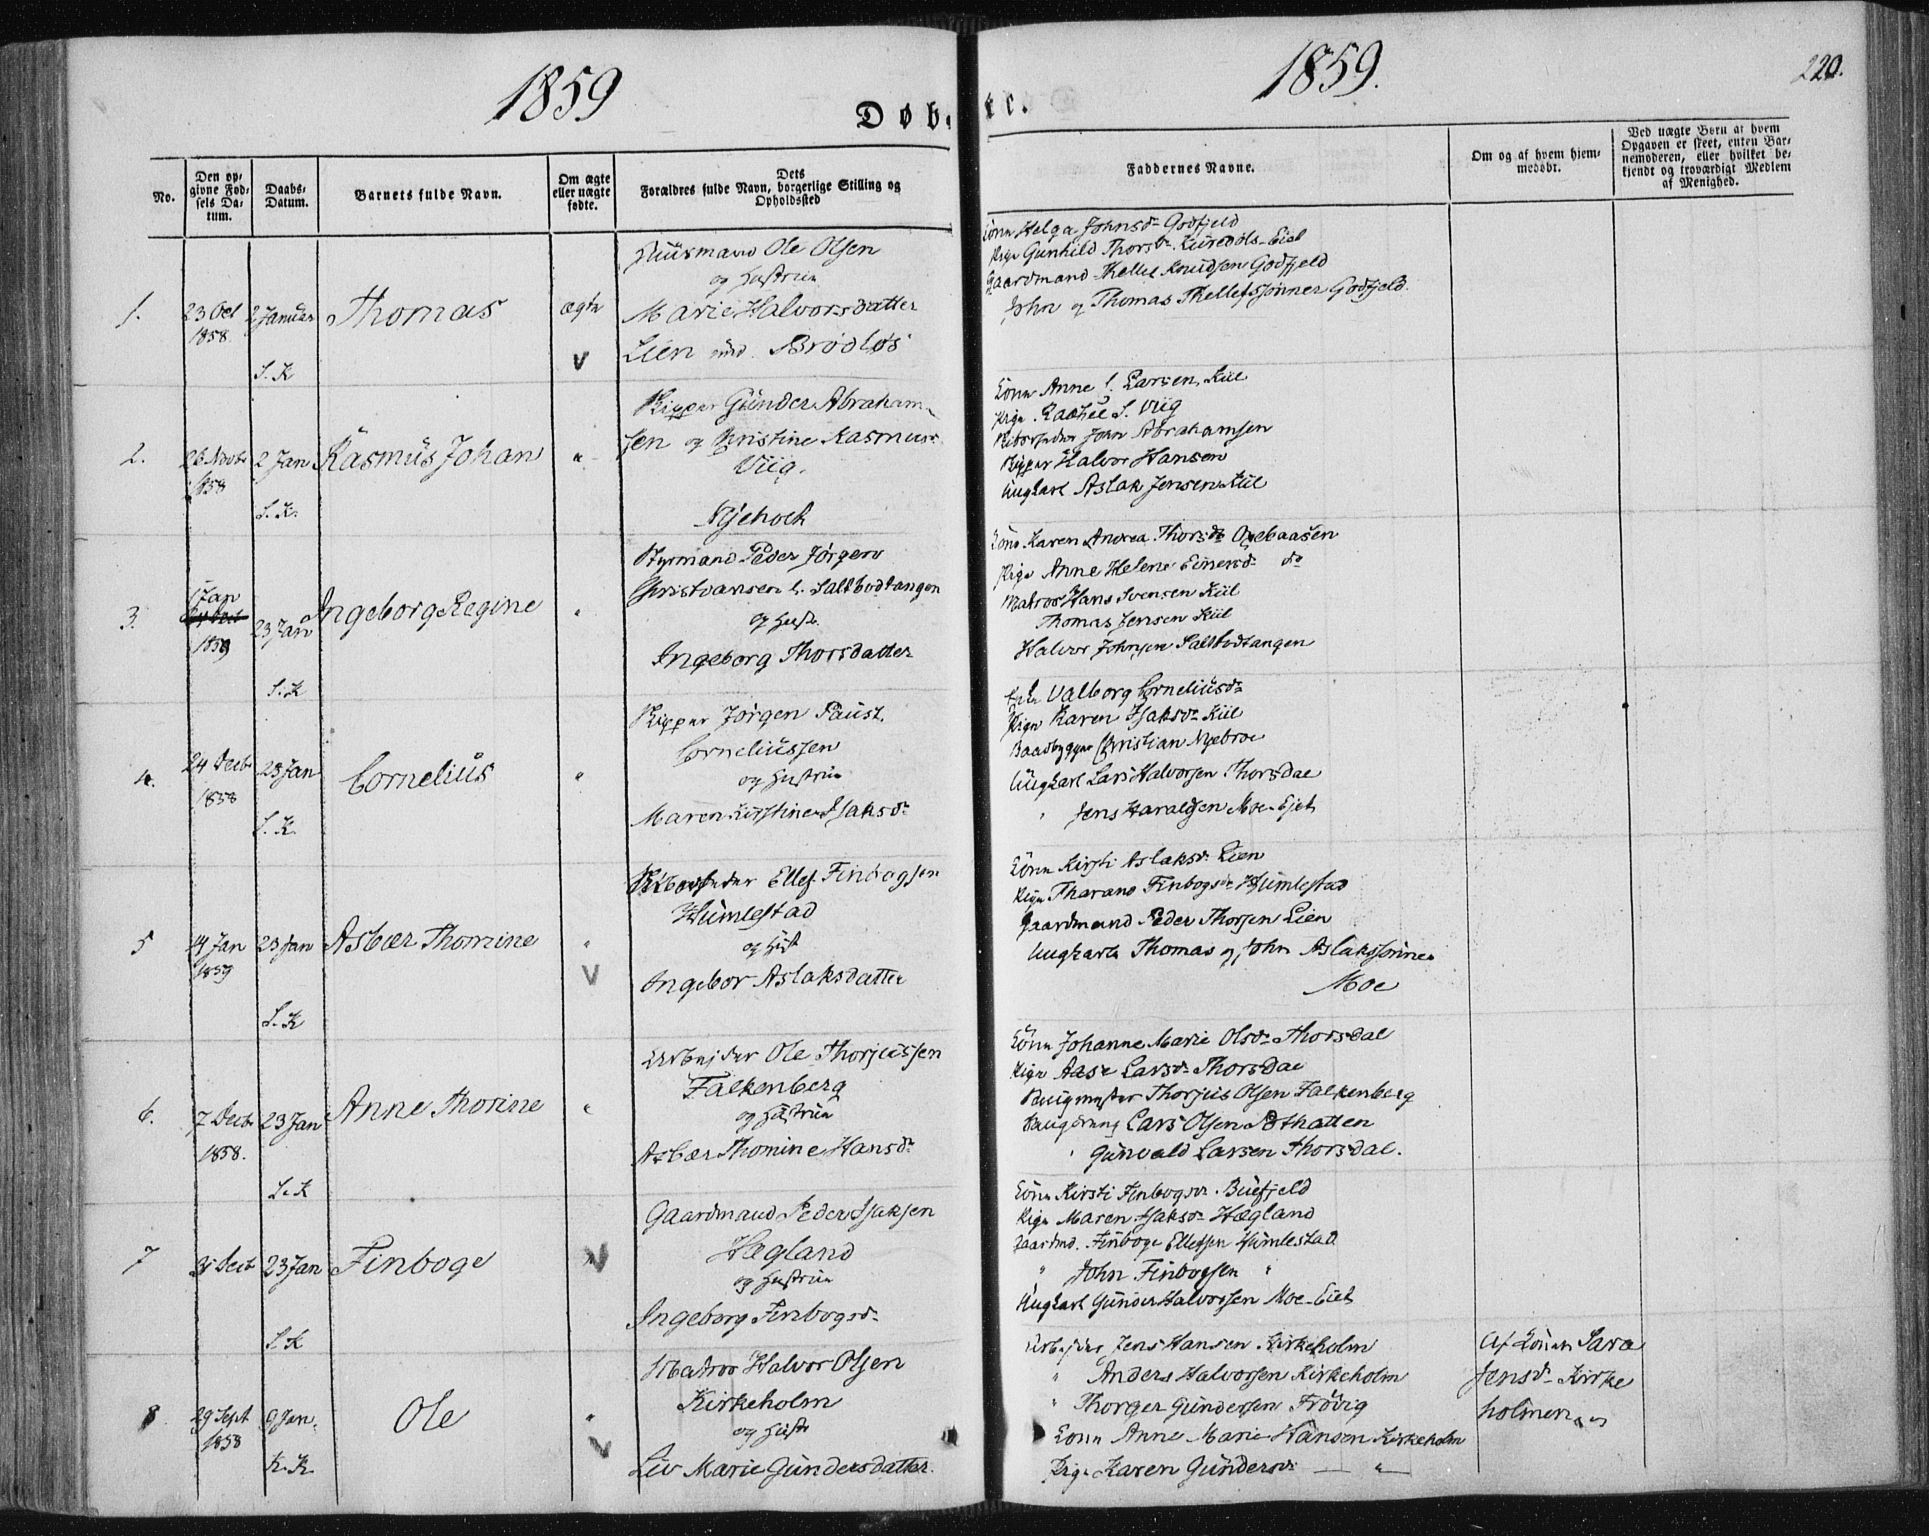 1859
1859.
220.
Døb-
te.
No.
Den op-
givne Fød-
sels Da-
tum.
Daabs-
Datum.
Barnets fulde Navn.
Om ægte
eller uægte
fødte.
Dets
Forældres fulde Navn, borgerlige Stilling og
Opholdssted
Faddernes Navne.
Om og af hvem hjem-
medøbt.
Ved uægte Børn af hvem
Opgaven er skeet, enten Bar-
nemoderen, eller hvilket be-
kjendt og troværdigt Medlem
af Menighed.
1.
23 Oct
1858
2 Januar
S. K
Thomas
ægte
V
Huusmand Ole Olsen
og Hustrue
Marie Halvorsdatter
Lien Brödløs
Kone Helga Johnsd. Godfjeld
Pige Gunhild Thorsd.
Gaardmand Knudsen Godfjeld
John og Thomas Thellefssønner Godfjeld.
2.
26 Novb
1858
2 Jan
S. K.
Rasmus Johan
"
Skipper Günder Abraham-
sen og Christine Rasmus
Viig.
Njehoek
Kone Anne Larsen, Kiil
Pige S. Viig
John Abrahamsen
Skipper Halvor Hansen
Ungkarl Aslak Jensen Kiil
3.
1 Jan
1859
23 Jan
S. K
Ingeborg Regine
"
Styrmand Peder Jörgen
Christiansen Saltbodtangen
og Hust.
Ingeborg Thorsdatter
Kone Karen Andrea Thorsd. Oxebaasen
Pige Anne Helene Einersd. do
Matros Hans Svensen Kiil
Thomas Jensen Kiil
Halvor Johnsen Saltbodtangen
4.
24 Decb
1858
23 Jan
S. K.
Cornelius
"
Skipper Jörgen Faust.
Corneliussen
og Hustrue
Maren Kirstine Isaksd.
Valborg Corneliusd.
Pige Karen Isaksd. Kiil
Baadbygger Christian Nyebroe
Ungkarl Lars Halvorsen Thorsdal
" Jens Haraldsen Moe-Ejet
5
14 Jan
1859
23 Jan
S. K
Asbær Thomine
"
V
Ellef Finbogsen
Humlestad
og Hust
Ingebor Aslaksdatter
Kone Kirsti Aslaksd. Lien
Pige Tharand Finbogsd. Humlestad
Gaardmand Peder Thorsen Lien
Ungkarle Thomas og John Aslakssønner
Moe
6.
7 Decb
1858.
23 Jan
S. K
Anne Thorine
"
Arbejder Ole Thorjussen
Falkenberg
og Hustrue
Asbær Thomine Hansd.
Kone Johanne Marie Olsd. Thorsdal
Pige Aase Larsd. Thorsdal
Thorjus Olsen Falkenberg
Lars Olsen
" Gunvald Larsen Thorsdal.
7
31 Decb
23 Jan
S K
Finboge
V
Gaardmand Peder Isaksen
Hægland
og Hustrue
Ingeborg Finbogsd.
Kone Kirsti Finbogsd. Buefjeld
Pige Maren Isaksd. Hægland
Gaardmd. Finboge Ellefsen Humlestad
" John Finbogsen "
Ungkarl Gunder Halvorsen Moe-Eiet
8
29 Sept
1858
9 Jan.
K. K.
Ole
"
V
Matros Halvor Olsen
Kirkeholm
og Hustr
Liv Marie Gundersdatter.
Arbejder Jens Hansen Kirkeholm
" Anders Halvorsen Kirkeholm
" Thorger Gundersen Frövig
Kone Anne Marie Hansen Kirkeholm
Pige Karen Gundersd. — " —
Af Konen Sara
Jensd. Kirke
holmen